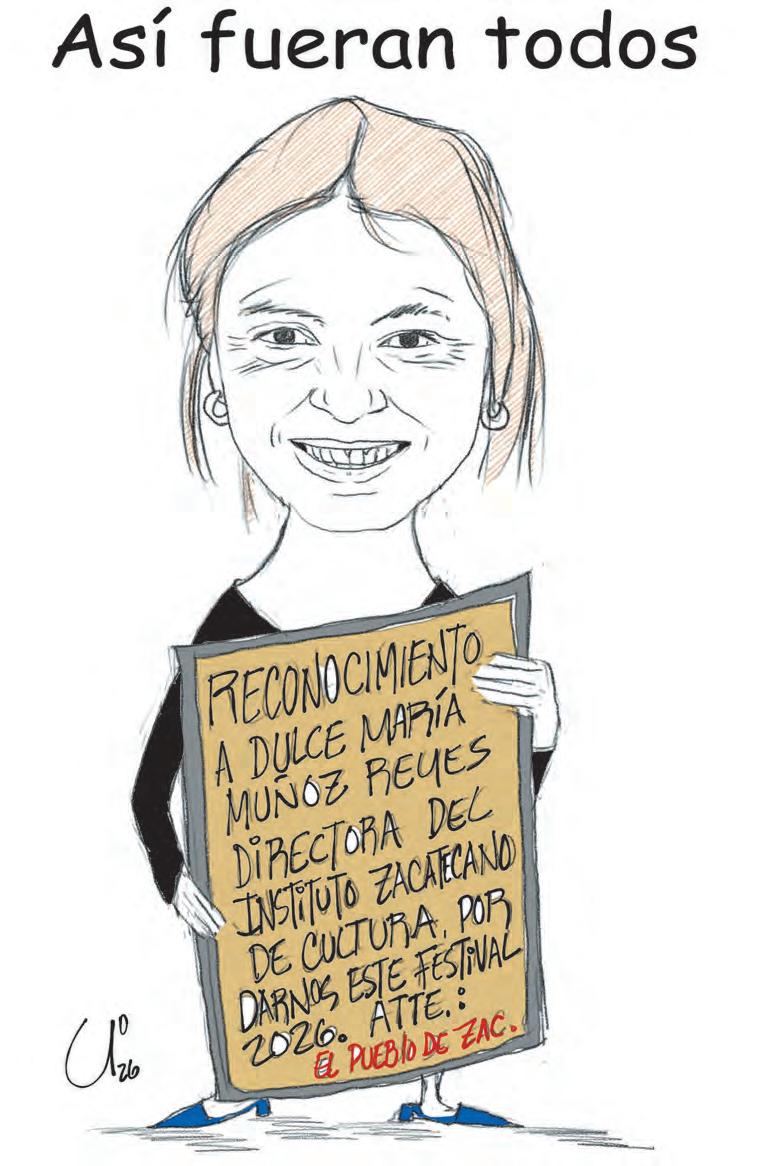 Así fueran todos
RECONOCIMIENTO
A DULCE MARÍA
MUÑOZ REYES
DIRECTORA DEL
INSTITUTO ZACATECANO
DE CULTURA, POR
DARNOS ESTE FESTIVAL
2026. ATTE.:
EL PUEBLO DE ZAC.
26